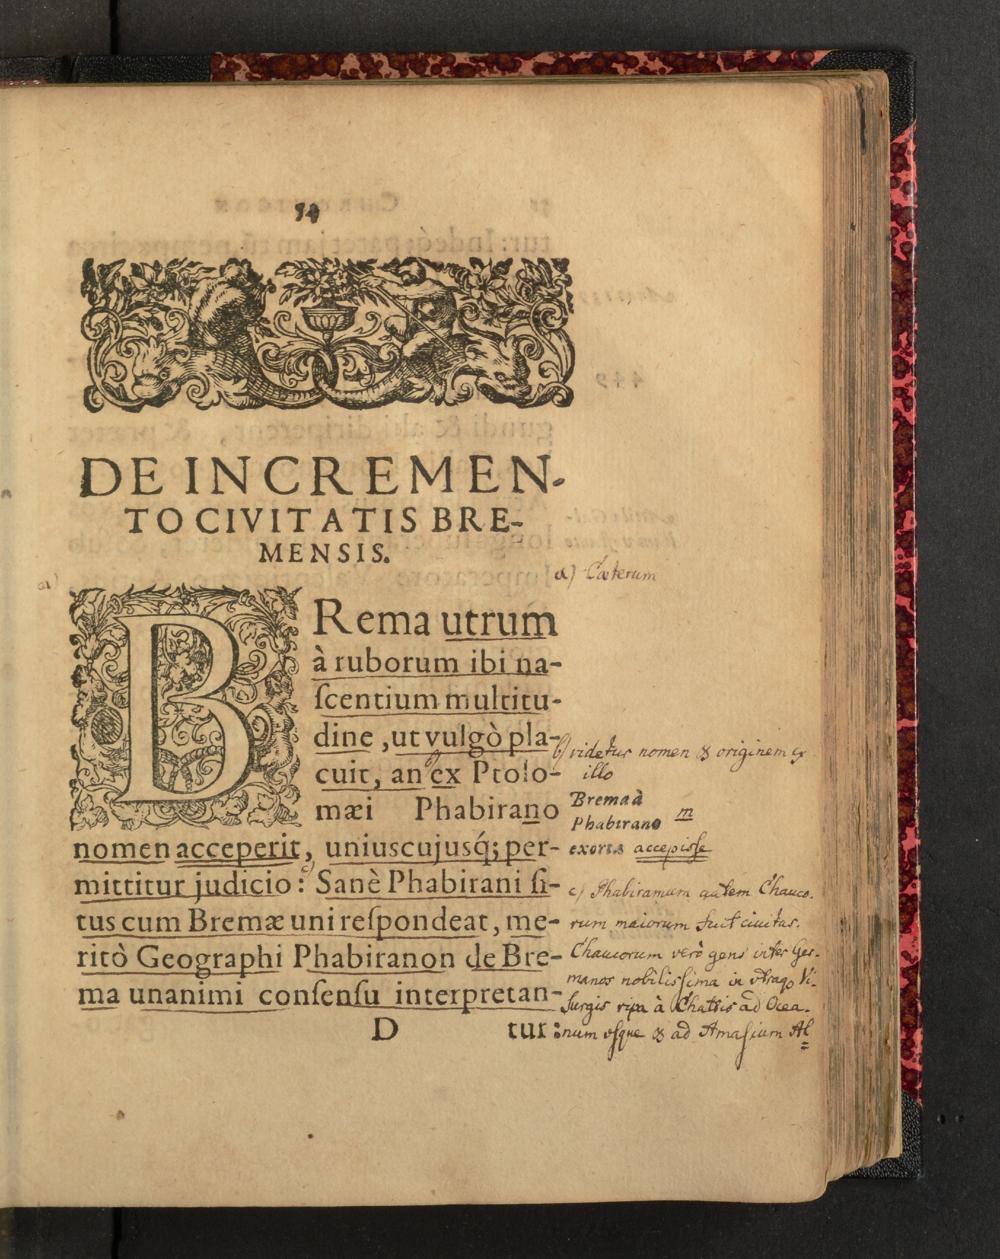 DE INCREMEN-
TO CIVITATIS BRE-
MENSIS.
a) Cæterum
BRema utrum
à ruborum ibi na-
ſcentium multitu-
dine, ut vulgò pla-
cuit, an ex Ptolo-
mæi Phabirano
nomen acceperit, uniuscujusq́; per-
mittitur judicio: Sanè Phabirani ſi-
tus cum Bremæ uni reſpondeat, me-
ritò Geographi Phabiranon de Bre-
ma unanimi conſenſu interpretan-
D tur:
b) videtur nomen & originem ex
illo
Brema à
Phabirano m
exorta accepiſſe
c) Phabiramum autem Chauco-
rum maiorum fuit ciuitas.
Chaucorum verò gens inter Ger-
manos nobiliſſima in Vi-
ſurgis ripa à Chattis ad Ocea-
num uſque & ad Amaſium Al